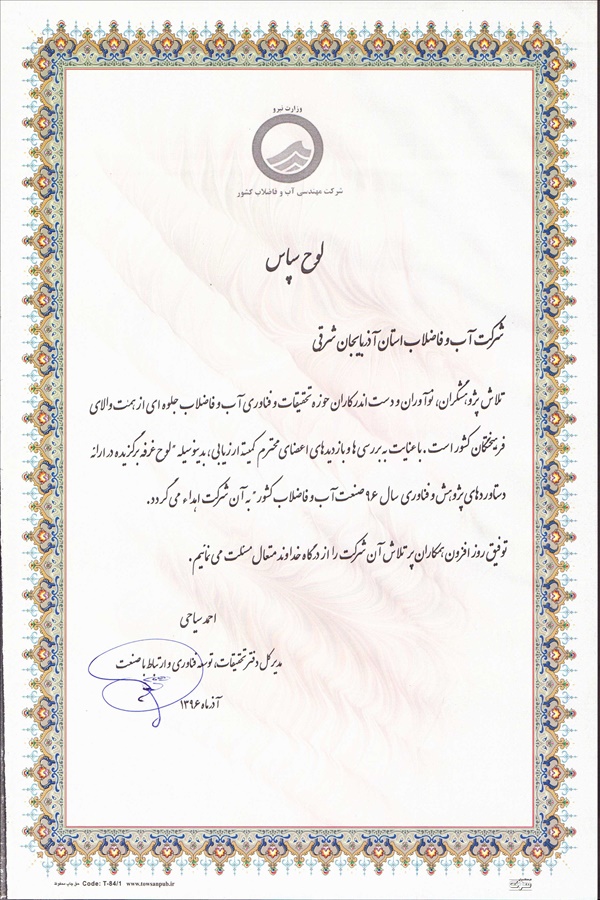 وزارت نیرو
شرکت مهندسی آب و فاضلاب کشور
لوح سپاس
شرکت آب و فاضلاب استان آذربایجان شرقی
تلاش پژوهشگران، نوآوران و دست اندرکاران حوزه تحقیقات و فناوری آب و فاضلاب جلوه ای از همت والای
فرهیختگان کشور است. با عنایت به بررسی ها و بازدیدهای اعضای محترم کمیته ارزیابی، بدینوسیله "لوح غرفه برگزیده در ارائه
دستاوردهای پژوهش و فناوری سال ۹۶ صنعت آب و فاضلاب کشور" به آن شرکت اهداء می گردد.
توفیق روز افزون همکاران پر تلاش آن شرکت را از درگاه خداوند متعال مسئلت می نمائیم.
احمد سیاحی
مدیر کل دفتر تحقیقات، توسعه فناوری و ارتباط با صنعت
آذر ماه ۱۳۹۶
حق چاپ محفوظ Code: T-84/1 www.towsanpub.ir